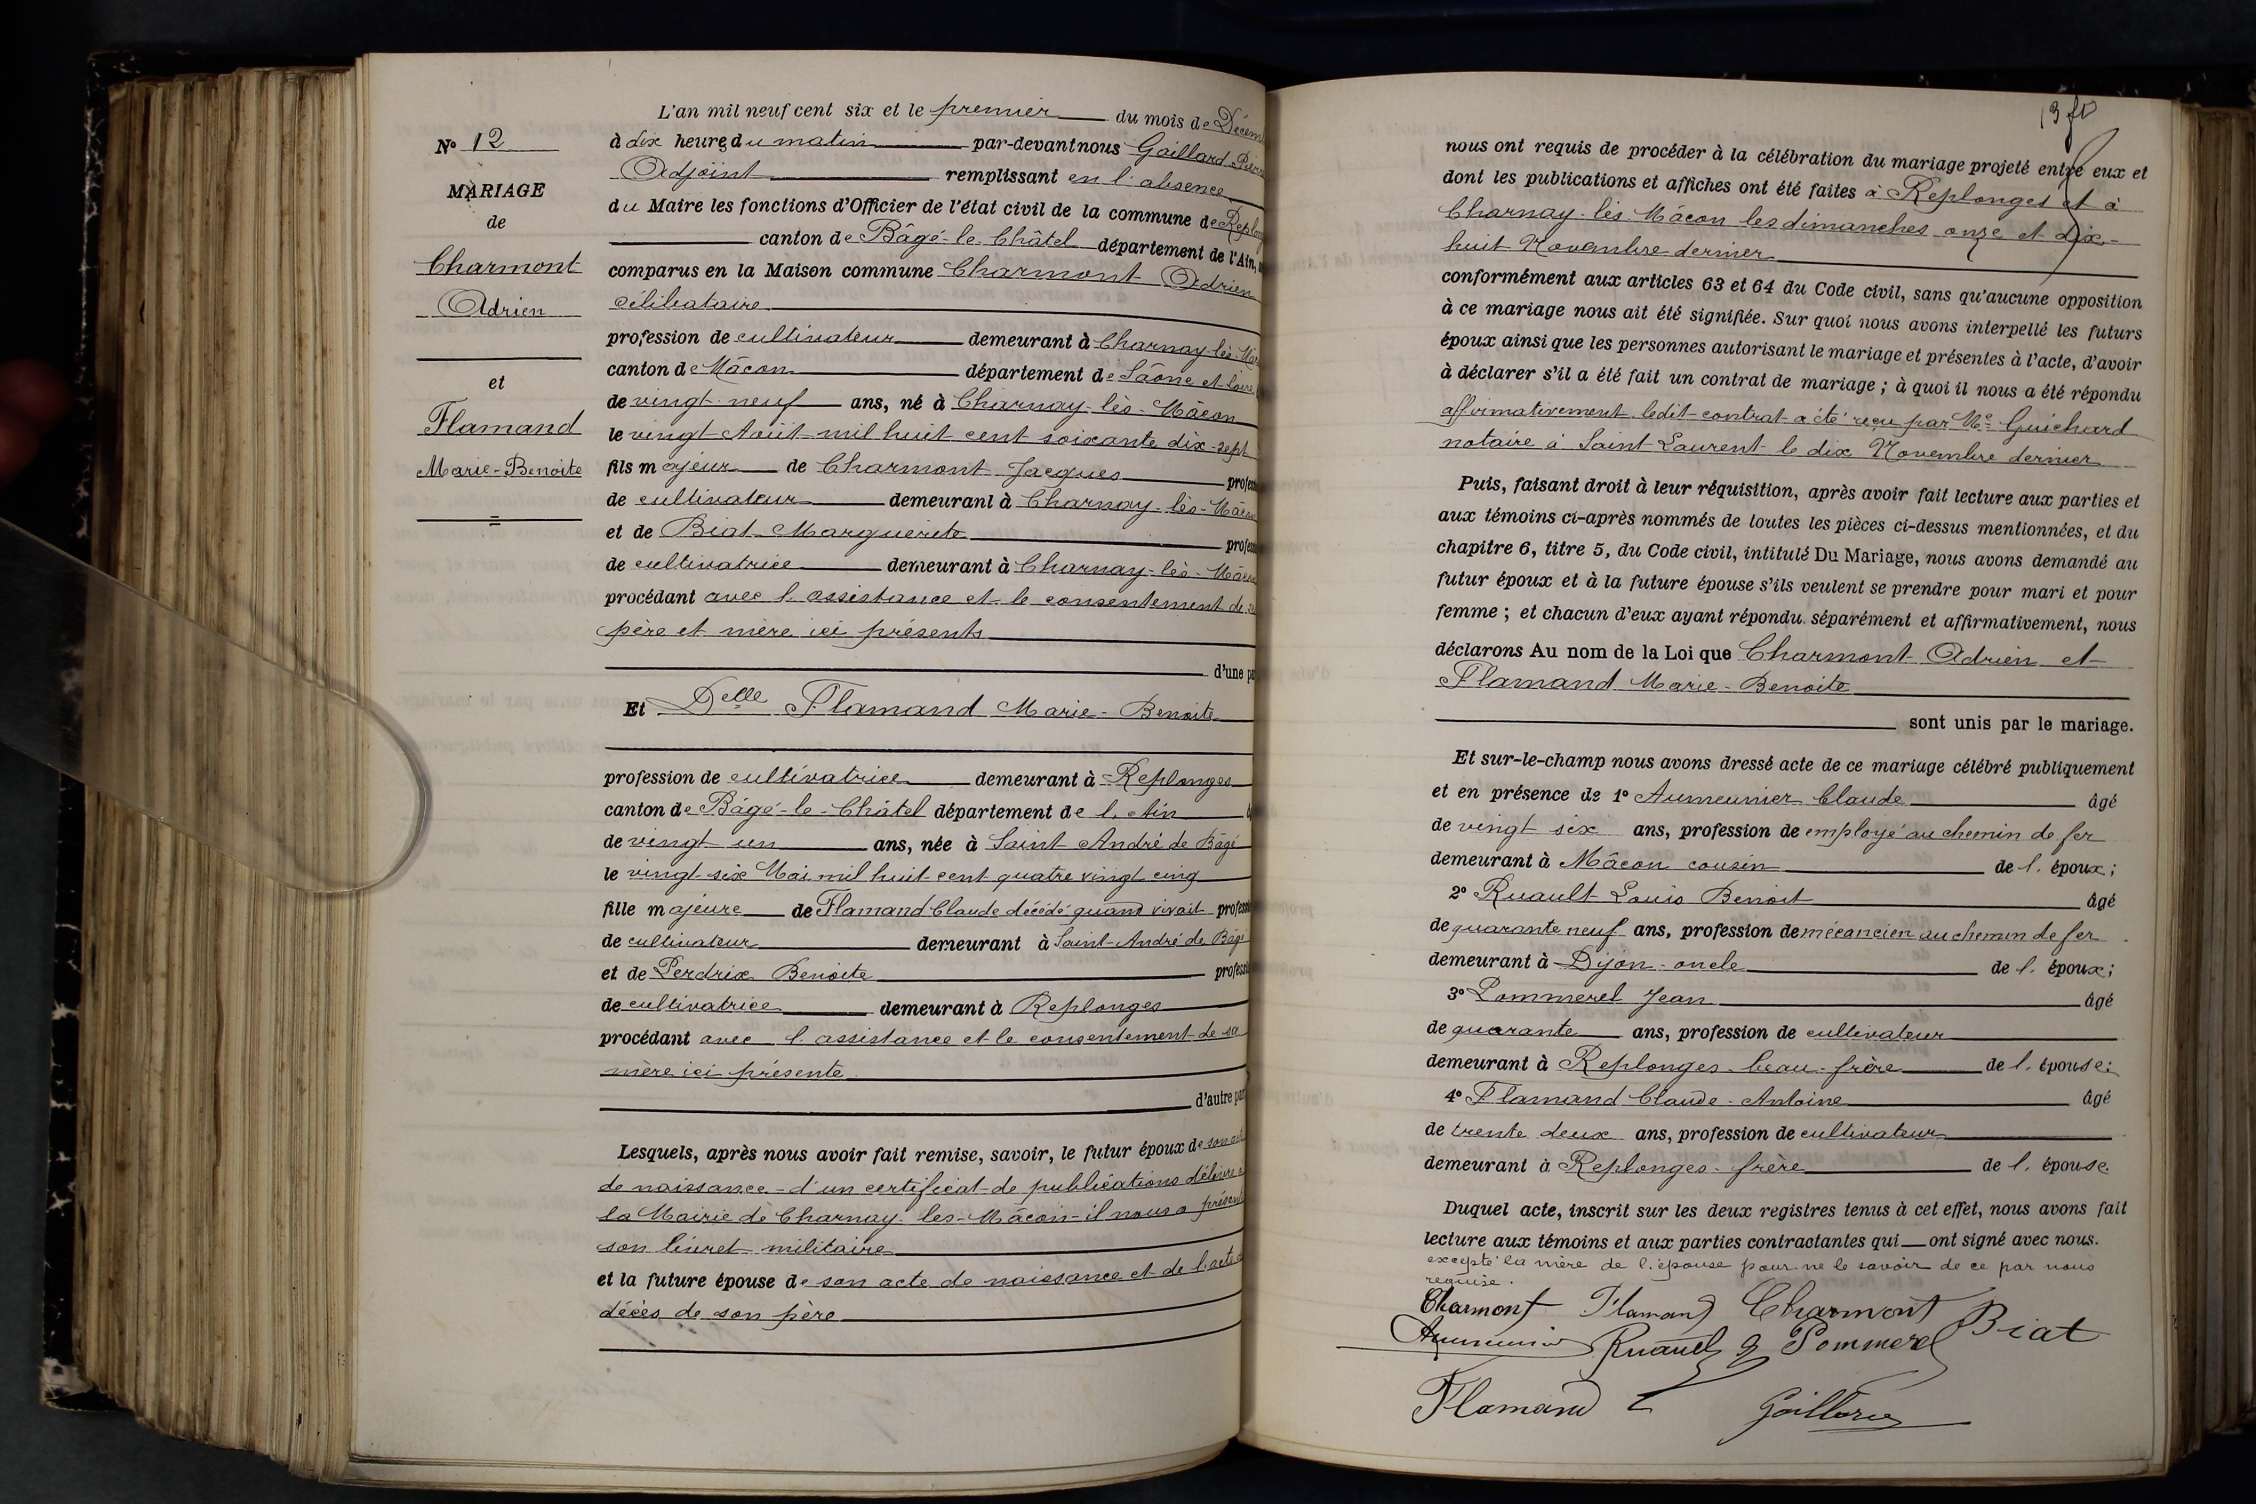 N° 12
MARIAGE
de
Charmont
Adrien
et
Flamand
Marie-Benoite
L'an mil neuf cent six et le premier du mois de Décem
à dix heures du matin par-devant nous Gaillard Pierre
Adjoint remplissant en l'absence
du Maire les fonctions d'Officier de l'état civil de la commune de Replong
canton de Bâgé-le-Châtel département de l'Ain,
comparus en la Maison commune Charmont Adrien
célibataire
profession de cultivateur demeurant à Charnay-lès-Mâc
canton de Mâcon département de Saône et Loire
de vingt-neuf ans, né à Charnay-lès-Mâcon
le vingt Août mil huit cent soixante dix-sept
fils majeur de Charmont Jacques profes
de cultivateur demeurant à Charnay-lès-Mâcon
et de Biat Marguerite profes
de cultivatrice demeurant à Charnay-lès-Mâcon
procédant avec l'assistance et le consentement de se
père et mère ici présents
d'une pa
Et Delle Flamand Marie-Benoite
profession de cultivatrice demeurant à Replonges
canton de Bâgé-le-Châtel département de l'Ain â
de vingt un ans, née à Saint André de Bâgé
le vingt-six Mai mil huit cent quatre vingt cinq
fille majeure de Flamand Claude décédé quand vivait profess
de cultivateur demeurant à Saint-André de Bâgé
et de Perdrix Benoite profess
de cultivatrice demeurant à Replonges
procédant avec l'assistance et le consentement de sa
mère ici présente
d'autre par
Lesquels, après nous avoir fait remise, savoir, le futur époux de son act
de naissance - d'un certificat de publications délivré
la Mairie de Charnay-les-Mâcon - il nous a présent
son livret militaire
et la future épouse de son acte de naissance et de l'acte
décès de son père
13 fo
nous ont requis de procéder à la célébration du mariage projeté entre eux et
dont les publications et affiches ont été faites à Replonges et à
Charnay-lès-Mâcon les dimanches onze et dix-
huit Novembre dernier
conformément aux articles 63 et 64 du Code civil, sans qu'aucune opposition
à ce mariage nous ait été signifiée. Sur quoi nous avons interpellé les futurs
époux ainsi que les personnes autorisant le mariage et présentes à l'acte, d'avoir
à déclarer s'il a été fait un contrat de mariage ; à quoi il nous a été répondu
affirmativement ledit contrat a été reçu par Me Guichard
notaire à Saint Laurent le dix Novembre dernier
Puis, faisant droit à leur réquisition, après avoir fait lecture aux parties et
aux témoins ci-après nommés de toutes les pièces ci-dessus mentionnées, et du
chapitre 6, titre 5, du Code civil, intitulé Du Mariage, nous avons demandé au
futur époux et à la future épouse s'ils veulent se prendre pour mari et pour
femme ; et chacun d'eux ayant répondu séparément et affirmativement, nous
déclarons Au nom de la Loi que Charmont Adrien et
Flamand Marie-Benoite
sont unis par le mariage.
Et sur-le-champ nous avons dressé acte de ce mariage célébré publiquement
et en présence de 1° Aumeunier Claude âgé
de vingt six ans, profession de employé au chemin de fer
demeurant à Mâcon cousin de l'époux ;
2° Ruault Louis Benoit âgé
de quarante neuf ans, profession de mécancien au chemin de fer
demeurant à Dijon - oncle de l'époux ;
3° Pommerel Jean âgé
de quarante ans, profession de cultivateur
demeurant à Replonges - beau-frère de l'épouse ;
4° Flamand Claude-Antoine âgé
de trente deux ans, profession de cultivateur
demeurant à Replonges - frère de l'épouse
Duquel acte, inscrit sur les deux registres tenus à cet effet, nous avons fait
lecture aux témoins et aux parties contractantes qui ont signé avec nous.
excepté la mère de l'épouse pour ne le savoir de ce par nous
requise.
Charmont Flamand Charmont Biat
Aumeunier Ruault Pommerel
Flamand Gaillard